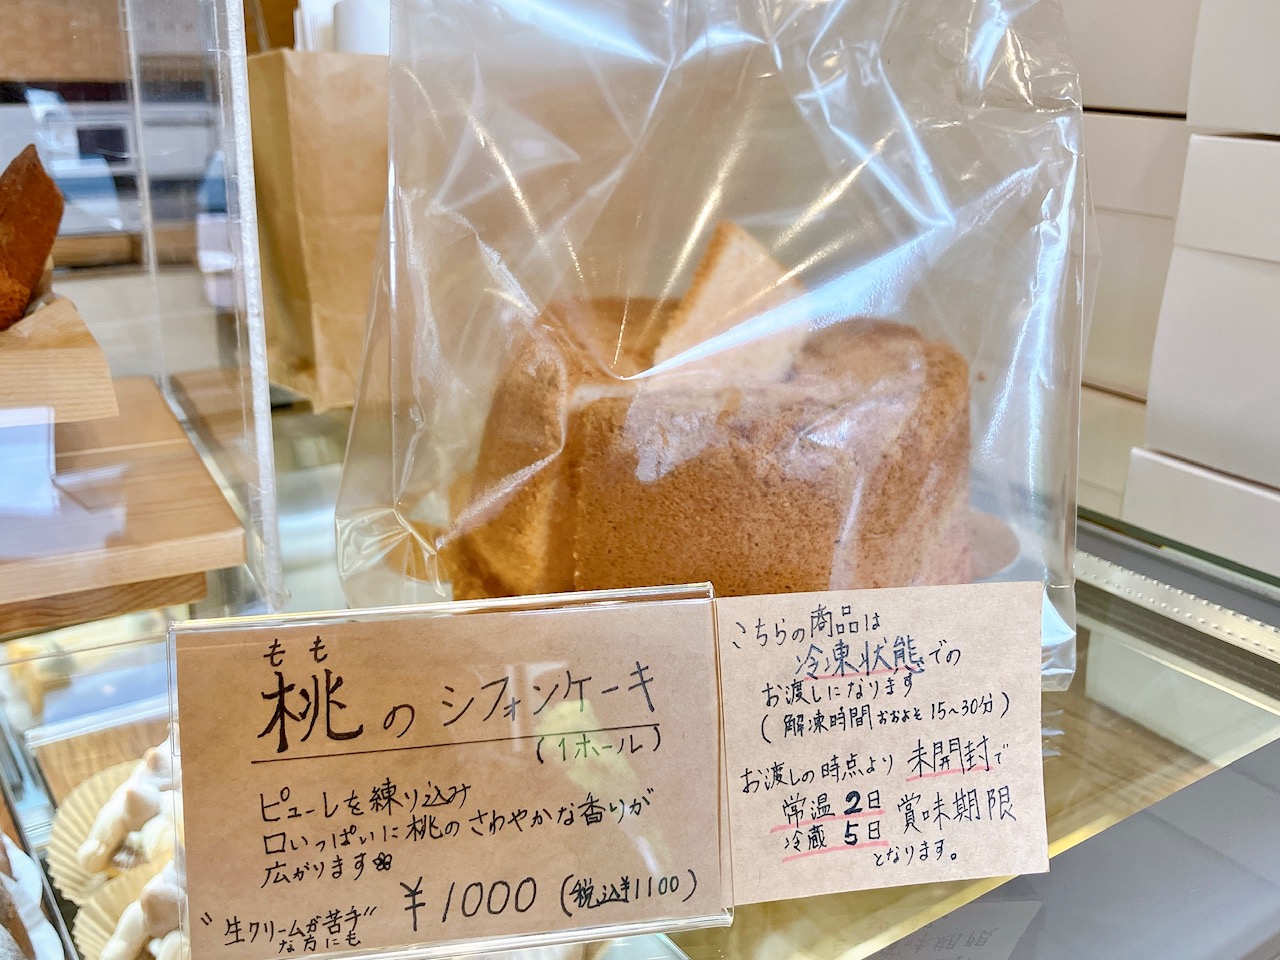 もも
桃のシフォンケーキ
(1ホール)
ピューレを練り込み
口いっぱいに桃のさわやかな香りが
広がります
"生クリームが苦手"
な方にも
¥1000(税込¥1100)
こちらの商品は
冷凍状態での
お渡しになります
(解凍時間おおよそ15~30分)
お渡しの時点より未開封で
常温2日
冷蔵5日
賞味期限
となります。